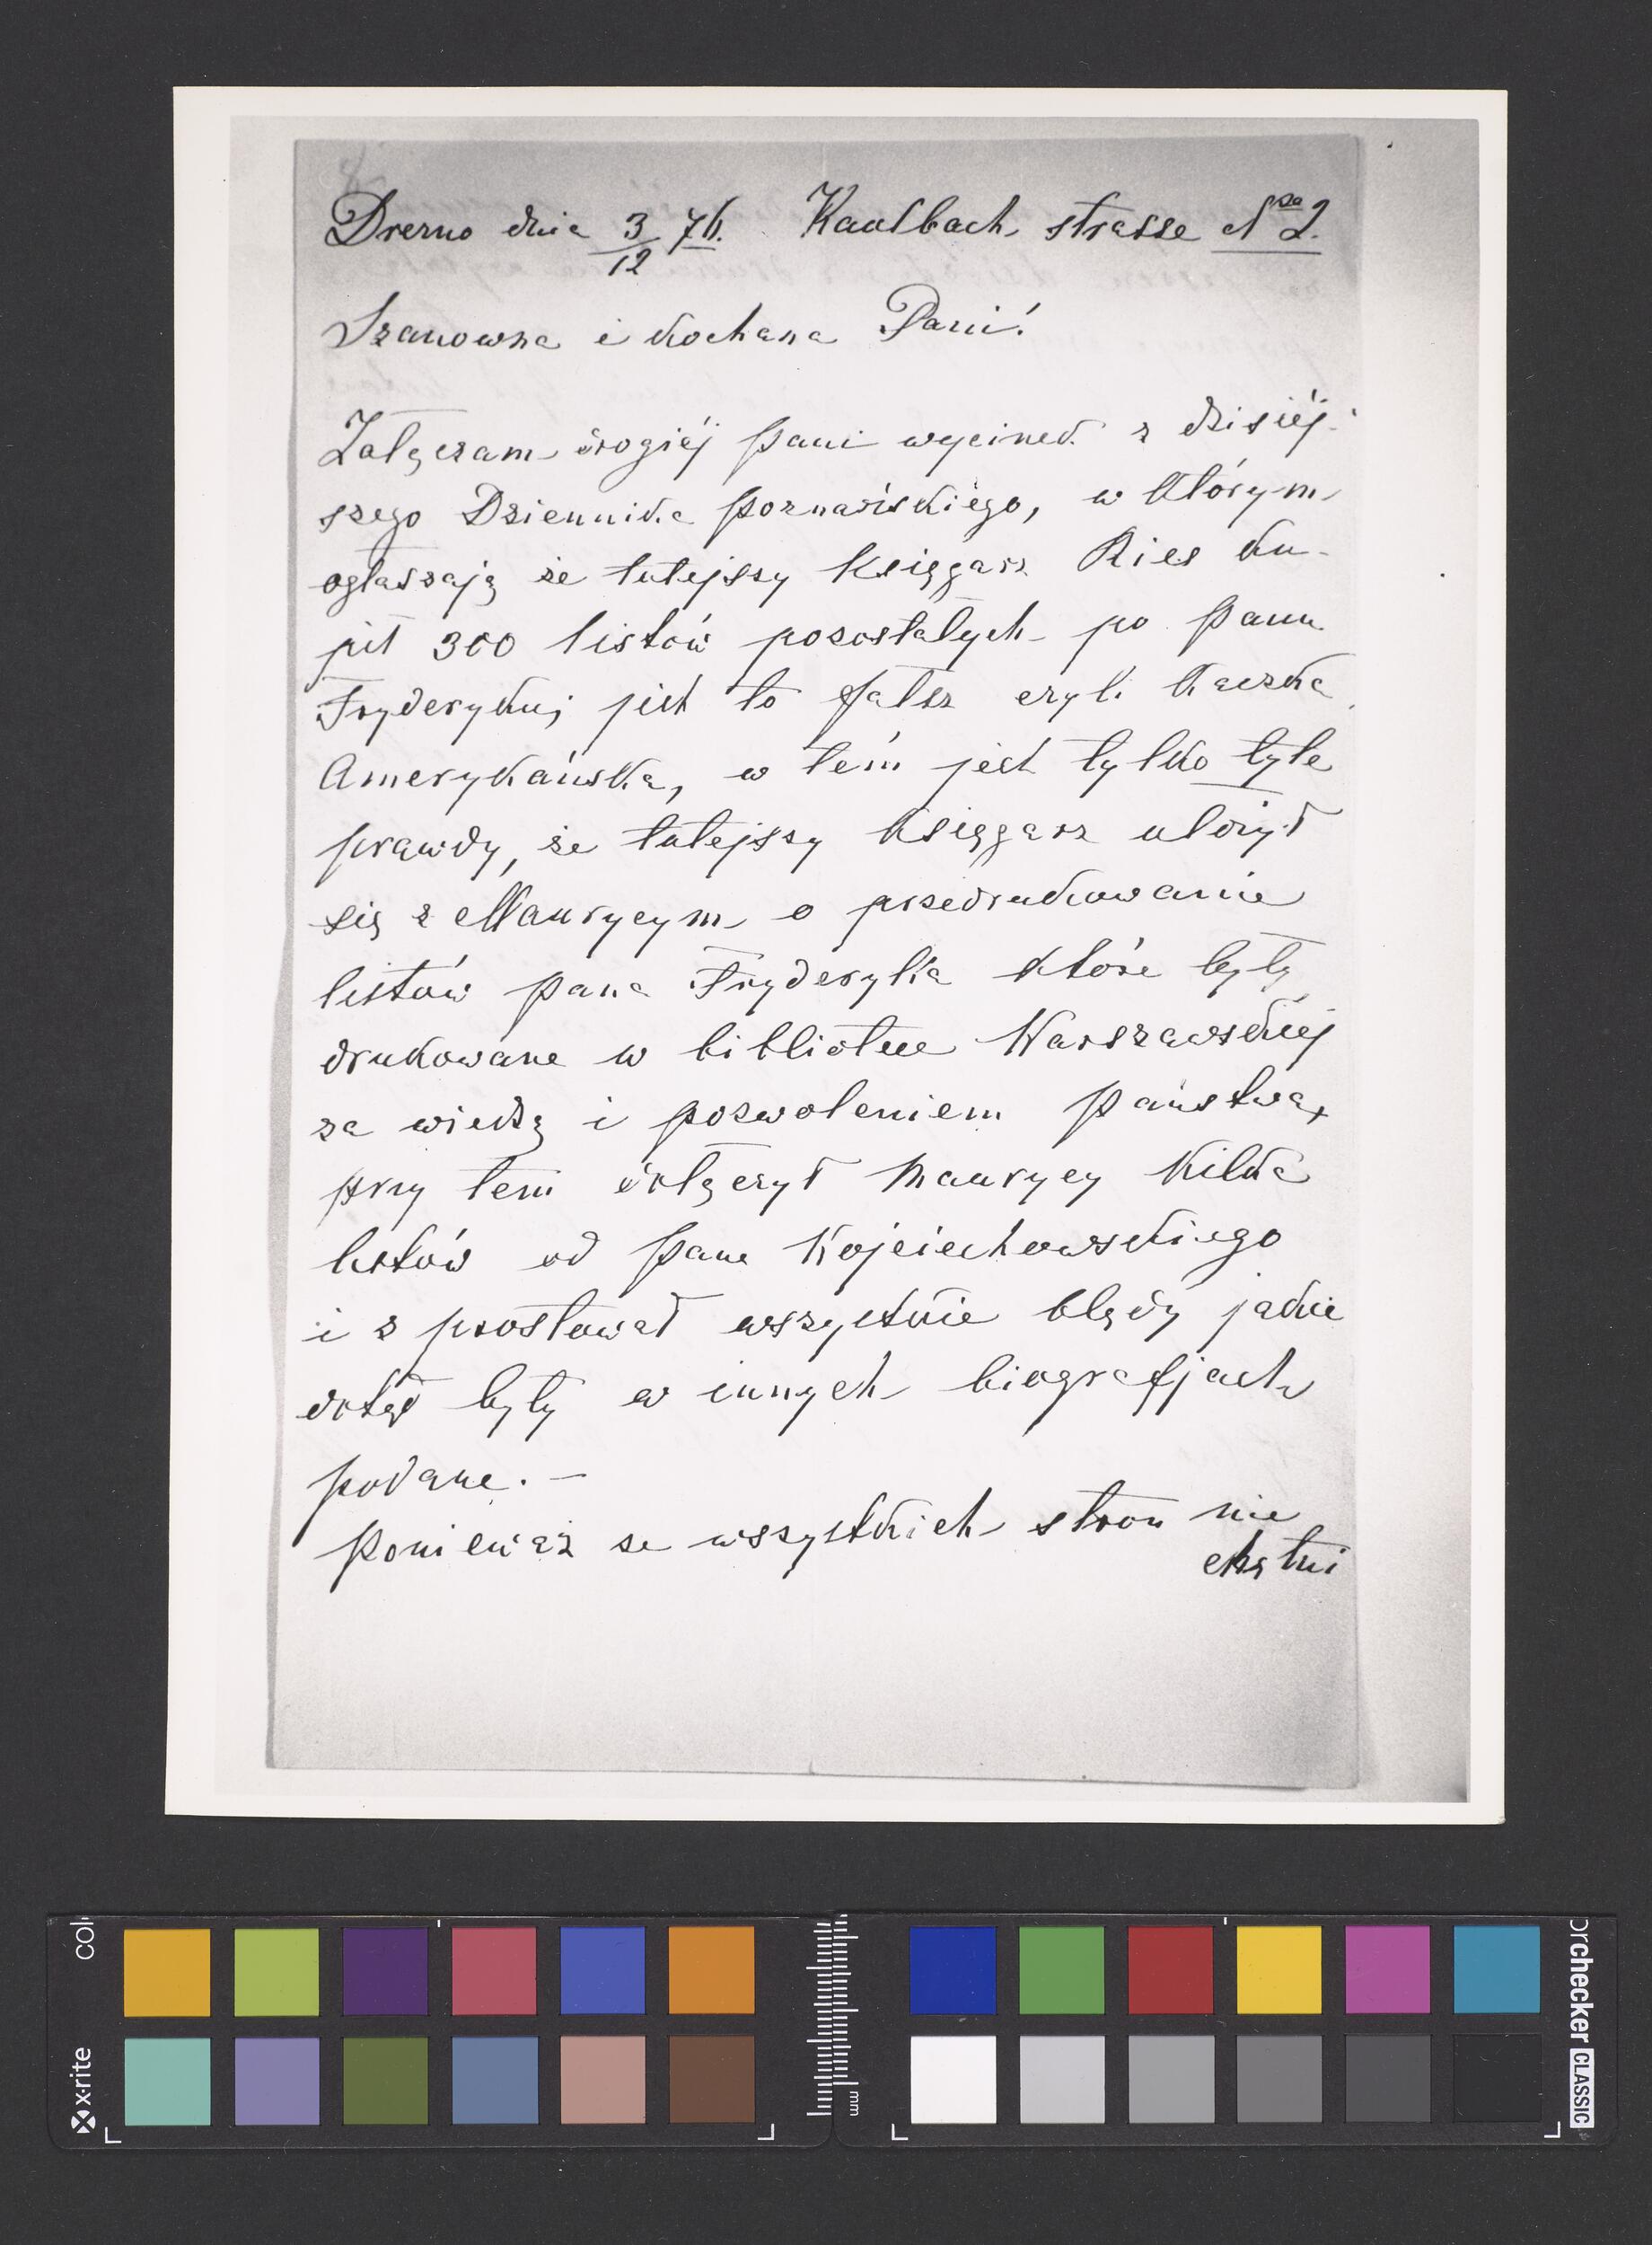 Drezno dnia 3/12 76. Kaulbach strasse No 2.
Szanowna i kochana Pani!
Załączam drogiéj Pani wycinek z dzisiéj-
szego Dziennika Poznańskiégo, w którym
ogłaszają że tutejszy Księgarz Ries ku-
pił 300 listów pozostałych po Panu
Fryderyku; jest to fałsz czyli Kaczka
Amerykańska, w tém jest tylko tyle
prawdy, że tutejszy Księgarz ułożył
się z Maurycym o przedrukowanie
listów Pana Fryderyka które były
drukowane w bibliotece Warszawskiéj
za wiedzą i pozwoleniem Państwa,
przy tem dołączył Maurycy kilka
listów od Pana Wojciechowskiego
i sprostował wszystkie błędy jakie
dotąd były w innych biografjach
podane. —
Ponieważ ze wszystkich stron nie
chętni
x-rite
colorchecker CLASSIC
mm